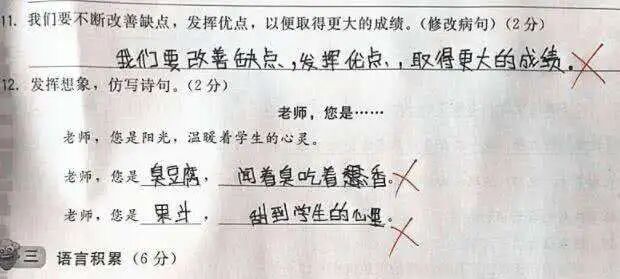 11. 我们要不断改善缺点，发挥优点，以便取得更大的成绩。(修改病句)(2分)
我们要改善缺点、,发挥优点、,取得更大的成绩。
12. 发挥想象，仿写诗句。(2分)
老师，您是……
老师，您是阳光，温暖着学生的心灵。
老师，您是 臭豆腐，闻着臭吃着香。
老师，您是 果斗，甜到学生的心里。
三 语言积累(6分)